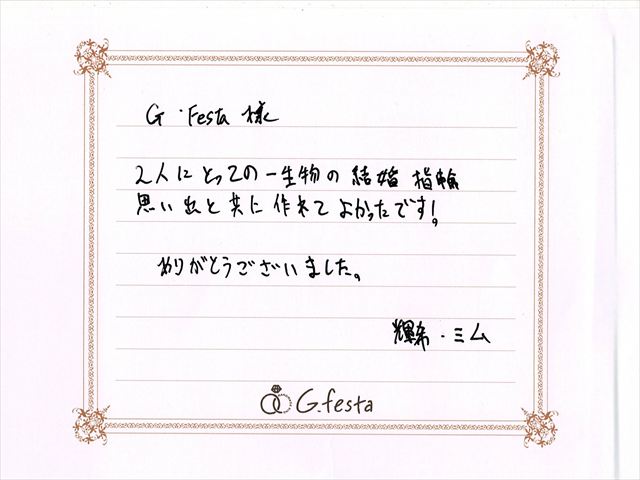 G・Festa 様
2人にとっての一生物の結婚指輪
思い出と共に作れてよかったです!
ありがとうございました。
輝希・ミム
G.festa